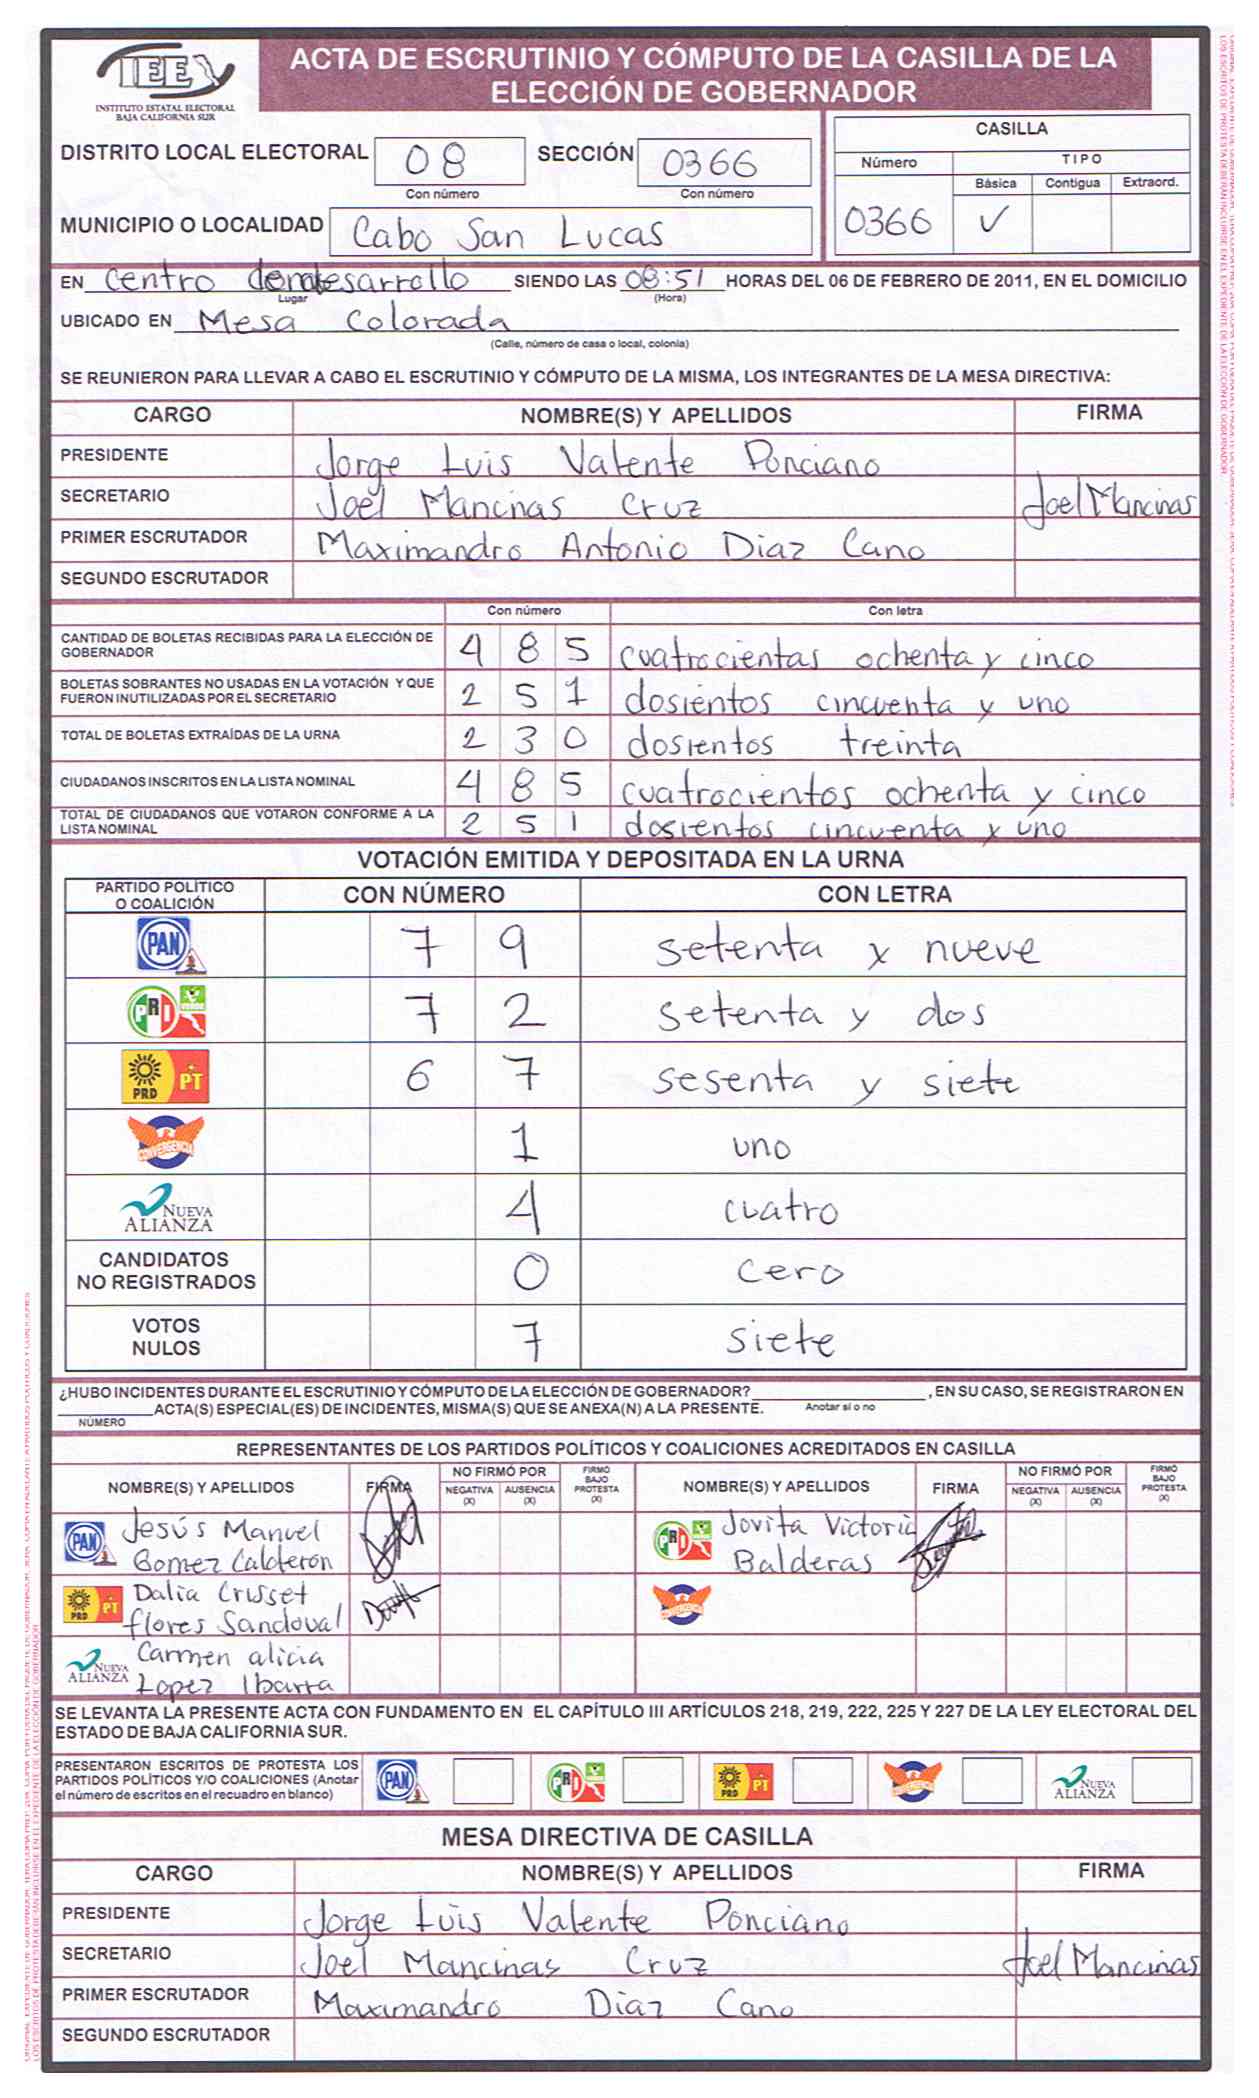 IEE
INSTITUTO ESTATAL ELECTORAL
BAJA CALIFORNIA SUR
ACTA DE ESCRUTINIO Y CÓMPUTO DE LA CASILLA DE LA
ELECCIÓN DE GOBERNADOR
DISTRITO LOCAL ELECTORAL 08 SECCIÓN 0366
Con número Con número
MUNICIPIO O LOCALIDAD Cabo San Lucas
CASILLA
Número TIPO
Básica Contigua Extraord.
0366 ✓
EN Centro SIENDO LAS 08:51 HORAS DEL 06 DE FEBRERO DE 2011, EN EL DOMICILIO
Lugar (Hora)
UBICADO EN Mesa Colorada
(Calle, número de casa o local, colonia)
SE REUNIERON PARA LLEVAR A CABO EL ESCRUTINIO Y CÓMPUTO DE LA MISMA, LOS INTEGRANTES DE LA MESA DIRECTIVA:
CARGO NOMBRE(S) Y APELLIDOS FIRMA
PRESIDENTE Jorge Luis Valente Ponciano
SECRETARIO Joel Mancinas Cruz Joel Mancinas
PRIMER ESCRUTADOR Maximandro Antonio Diaz Cano
SEGUNDO ESCRUTADOR
Con número Con letra
CANTIDAD DE BOLETAS RECIBIDAS PARA LA ELECCIÓN DE
GOBERNADOR 4 8 5 cuatrocientas ochenta y cinco
BOLETAS SOBRANTES NO USADAS EN LA VOTACIÓN Y QUE
FUERON INUTILIZADAS POR EL SECRETARIO 2 5 1 dosientos cincuenta y uno
TOTAL DE BOLETAS EXTRAÍDAS DE LA URNA 2 3 0 dosientos treinta
CIUDADANOS INSCRITOS EN LA LISTA NOMINAL 4 8 5 cuatrocientos ochenta y cinco
TOTAL DE CIUDADANOS QUE VOTARON CONFORME A LA
LISTA NOMINAL 2 5 1 dosientos cincuenta y uno
VOTACIÓN EMITIDA Y DEPOSITADA EN LA URNA
PARTIDO POLÍTICO
O COALICIÓN CON NÚMERO CON LETRA
PAN 7 9 setenta y nueve
PRI VERDE 7 2 setenta y dos
PRD PT 6 7 sesenta y siete
CONVERGENCIA 1 uno
NUEVA
ALIANZA 4 cuatro
CANDIDATOS
NO REGISTRADOS 0 cero
VOTOS
NULOS 7 siete
¿HUBO INCIDENTES DURANTE EL ESCRUTINIO Y CÓMPUTO DE LA ELECCIÓN DE GOBERNADOR? , EN SU CASO, SE REGISTRARON EN
ACTA(S) ESPECIAL(ES) DE INCIDENTES, MISMA(S) QUE SE ANEXA(N) A LA PRESENTE. Anotar si o no
NÚMERO
REPRESENTANTES DE LOS PARTIDOS POLÍTICOS Y COALICIONES ACREDITADOS EN CASILLA
NOMBRE(S) Y APELLIDOS FIRMA NO FIRMÓ POR NEGATIVA (X) AUSENCIA (X) FIRMÓ BAJO PROTESTA (X) NOMBRE(S) Y APELLIDOS FIRMA NO FIRMÓ POR NEGATIVA (X) AUSENCIA (X) FIRMÓ BAJO PROTESTA (X)
PAN Jesús Manuel PRI VERDE Jovita Victoria
Gomez Calderon Balderas
PRD PT Dalia Crisset CONVERGENCIA
flores Sandoval
NUEVA ALIANZA Carmen alicia
Lopez Ibarra
SE LEVANTA LA PRESENTE ACTA CON FUNDAMENTO EN EL CAPÍTULO III ARTÍCULOS 218, 219, 222, 225 Y 227 DE LA LEY ELECTORAL DEL
ESTADO DE BAJA CALIFORNIA SUR.
PRESENTARON ESCRITOS DE PROTESTA LOS
PARTIDOS POLÍTICOS Y/O COALICIONES (Anotar
el número de escritos en el recuadro en blanco) PAN PRI VERDE PRD PT CONVERGENCIA NUEVA ALIANZA
MESA DIRECTIVA DE CASILLA
CARGO NOMBRE(S) Y APELLIDOS FIRMA
PRESIDENTE Jorge Luis Valente Ponciano
SECRETARIO Joel Mancinas Cruz Joel Mancinas
PRIMER ESCRUTADOR Maximandro Diaz Cano
SEGUNDO ESCRUTADOR